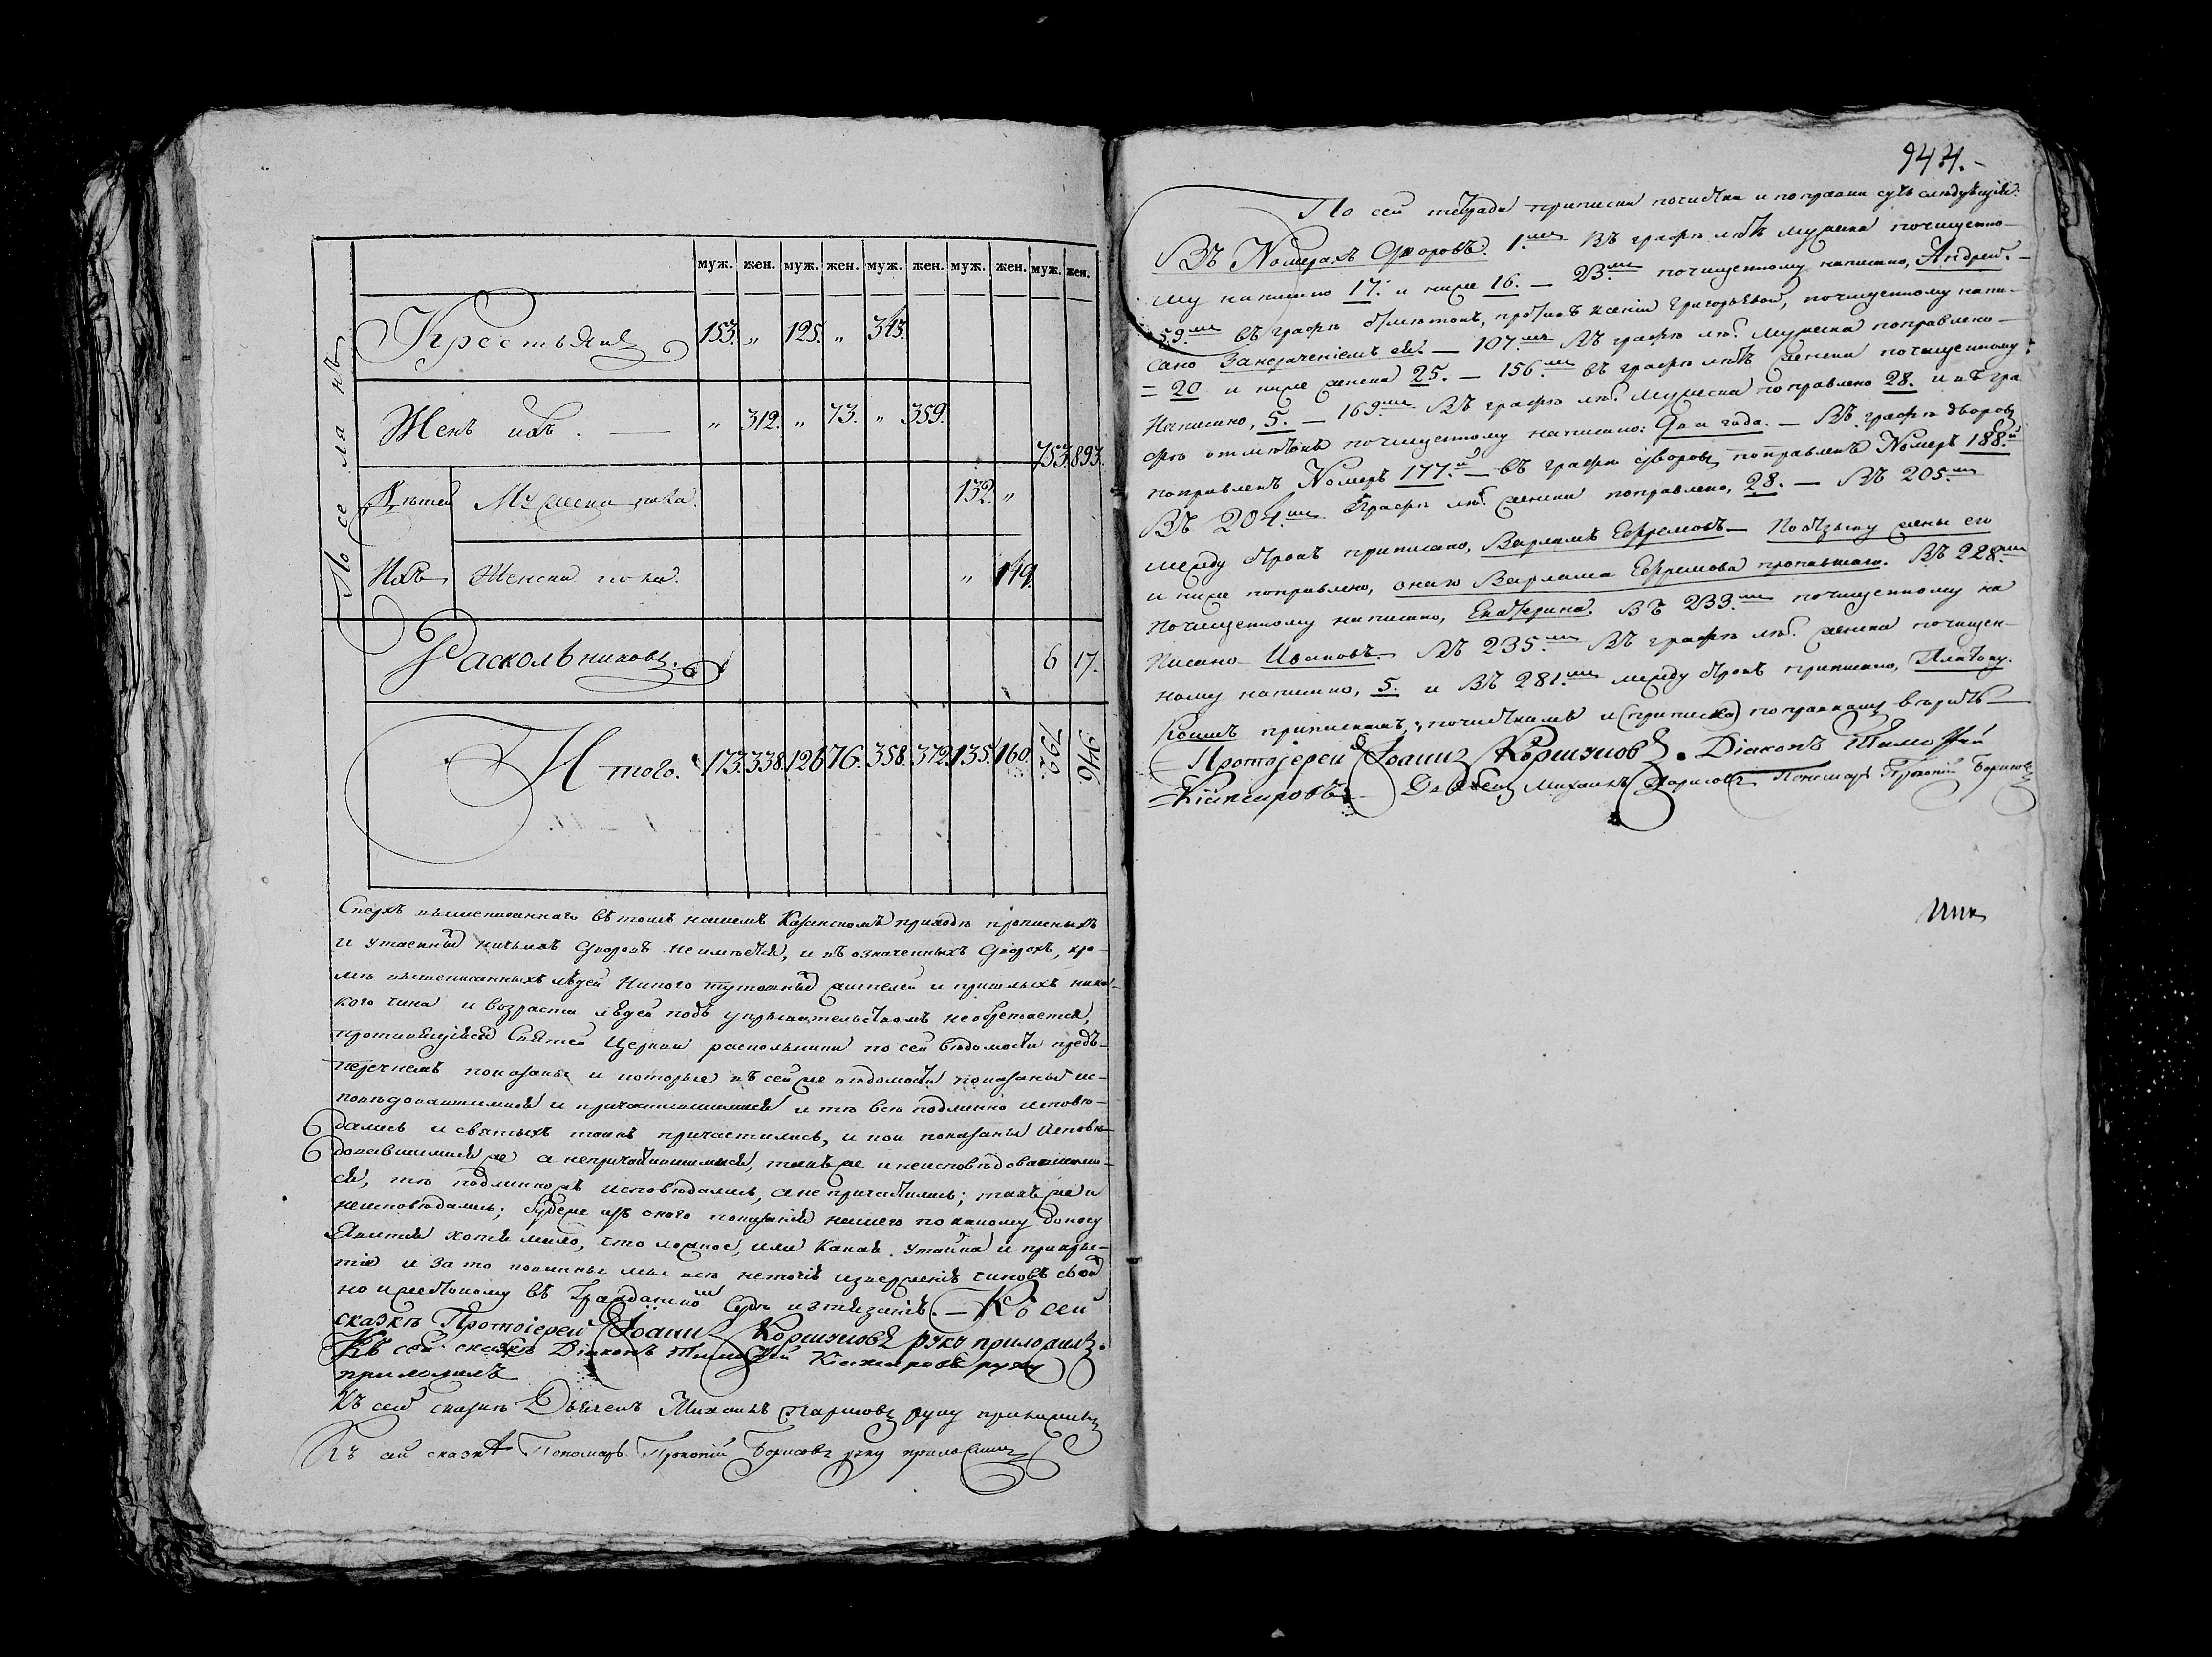 муж. жен. муж. жен. муж. жен. муж. жен. муж. жен.
Поселянъ
Крестьянъ 153. „ 125. „ 343.
Женъ ихъ. „ 312. „ 73. „ 359.
753. 893.
Дѣтей Мужеска пола. 132. „
Ихъ Женска пола. „ 149.
Раскольниковъ. 6 17.
Итого. 173. 338. 126. 76. 358. 372. 135. 160. 792. 946.
Сверхъ вышеписаннаго въ томъ нашемъ Казанскомъ приходѣ прописныхъ
и утаенныхъ ничьихъ дворовъ неимѣется, и въ означенныхъ дворахъ, кро-
мѣ вышеписанныхъ людей никого тутошныхъ жителей и пришлыхъ ника-
кого чина и возраста людей подъ укрывательствомъ необретается,
противящійся Святей Церкви раскольники по сей вѣдомости предъ-
перечнемъ показаны и которые въ сей же вѣдомости показаны ис-
повѣдовавшимися и причастившимися и тѣ всѣ подлинно исповѣ-
дались и святыхъ таинъ причастились, и кои показаны исповѣ-
довавшимися же а непричастившимися, такъ же и неисповѣдовавшими-
ся, тѣ подлинножъ исповѣдались, а не причастились; такъ же и
неисповѣдались; будеже изъ оного показанія нашего по какому доносу
явится хотя мало, что ложное, или какая утайка и прикры-
тіе и за то повинны мы всѣ неточію изверженію чиновъ своихъ
но и жестокому въ Гражданскомъ Судѣ изтязанію. — Къ сей
сказкѣ Протоіерей Іоаннъ Коршуновъ руку приложилъ.
Къ сей скаскѣ Діаконъ Тимофей руку
приложилъ
Къ сей сказкѣ Дьячекъ Михаилъ Ларисовъ руку приложилъ
Къ сей сказкѣ Пономарь Прокопій Борисовъ руку приложилъ
944.-
По сей тетради приписки почистки и поправки суть слѣдующія:
Въ Номерахъ Дворовъ. 1.мъ Въ графѣ лѣтъ мужеска почищенно-
му написано 17. и ниже 16. — 23.мъ почищенному написано, Андрей. —
59.мъ въ графѣ отмѣтокъ, противъ Ксеніи Григорьевой, почищенному напи-
сано Занерачениемъ ея. — 107.мъ Въ графѣ лѣт. мужеска поправлено —
= 20 и ниже женска 25. — 156.мъ въ графѣ лѣтъ женска почищенному
Написано, 5. — 169.мъ Въ графѣ лѣт. Мужеска поправлено 28. и въ гра
фѣ отмѣтокъ почищенному написано: Два года. — Въ графѣ дворовъ
поправленъ Номеръ 177.й — въ графѣ дворовъ поправленъ Номеръ 188.й
Въ 204.мъ Графѣ лѣт. женска поправлено, 28. — Въ 205.мъ
между строкъ приписано, Варламъ Ефремовъ — По отзыву жены его
и ниже поправлено, онаго Варлама Ефремова пропавшаго. Въ 228.мъ
Почищенному написано, Екатерина. Въ 233.мъ почищенному на
писано Ивановъ. Въ 235.мъ Въ графѣ лѣт. женска почищен-
ному написано, 5. и Въ 281.мъ между строкъ приписано, Платону.
Коимъ припискамъ, почисткамъ и (приписка) поправкамъ вѣрить —
Протоіерей Іоаннъ Коршуновъ. Діаконъ Тимофей
Дьячекъ Михаилъ Ларисовъ Пономарь Прокопій Борисовъ